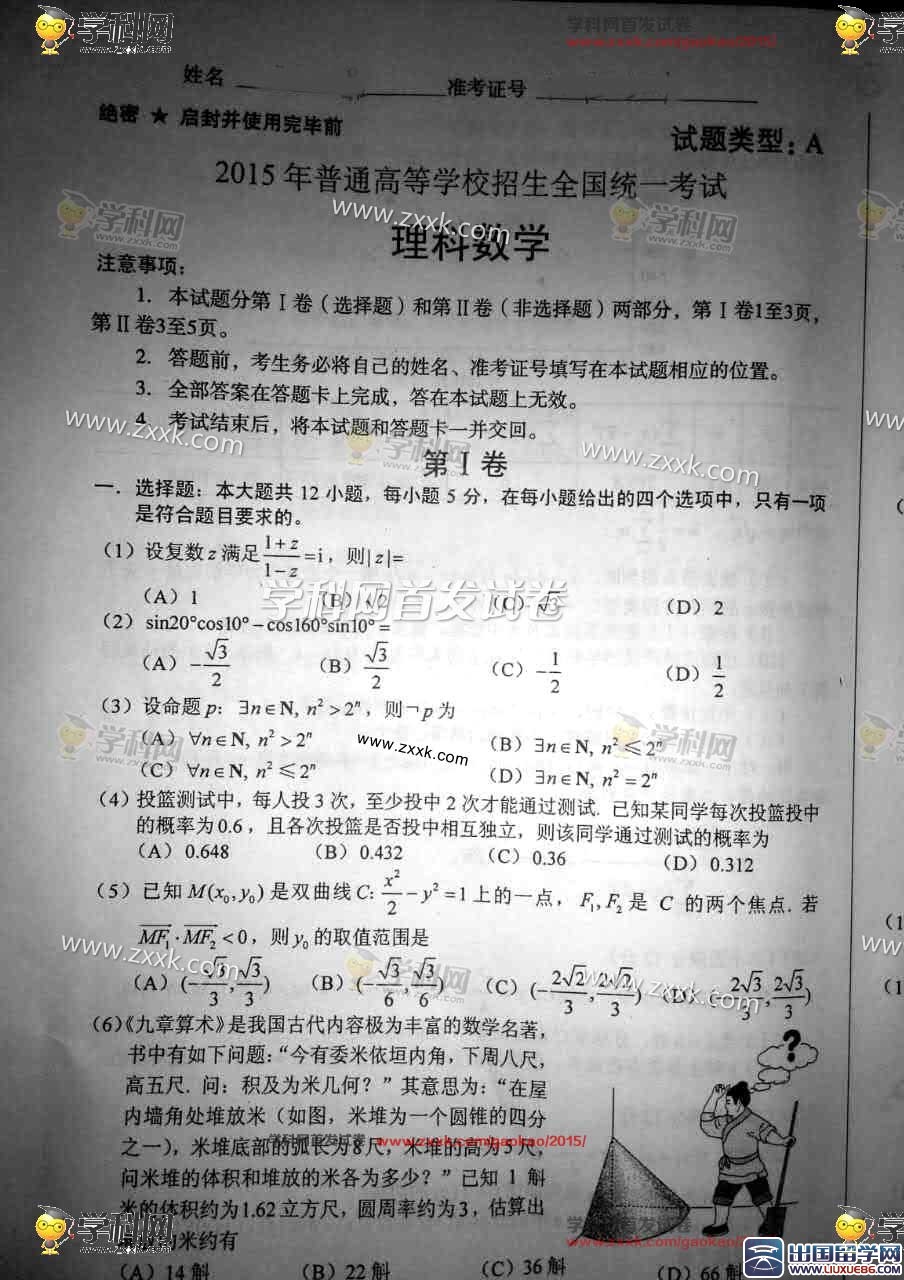 学科网 www.zxxk.com
学科网首发试卷
www.zxxk.com/gaokao/2015/
姓名 准考证号
绝密 ★ 启封并使用完毕前
试题类型：A
2015 年普通高等学校招生全国统一考试
理科数学
注意事项：
1. 本试题分第Ⅰ卷（选择题）和第Ⅱ卷（非选择题）两部分，第Ⅰ卷1至3页，
第Ⅱ卷3至5页。
2. 答题前，考生务必将自己的姓名、准考证号填写在本试题相应的位置。
3. 全部答案在答题卡上完成，答在本试题上无效。
4. 考试结束后，将本试题和答题卡一并交回。
第Ⅰ卷
一. 选择题：本大题共 12 小题，每小题 5 分，在每小题给出的四个选项中，只有一项
是符合题目要求的。
（1）设复数 z 满足 (1+z)/(1-z) =i，则|z|=
（A）1 （B） （C）√3 （D）2
（2）sin20°cos10°－cos160°sin10°=
（A）-√3/2 （B）√3/2 （C）-1/2 （D）1/2
（3）设命题 p：∃n∈N, n²>2ⁿ，则¬p为
（A）∀n∈N, n²>2ⁿ （B）∃n∈N, n²≤2ⁿ
（C）∀n∈N, n²≤2ⁿ （D）∃n∈N, n²=2ⁿ
（4）投篮测试中，每人投 3 次，至少投中 2 次才能通过测试. 已知某同学每次投篮投中
的概率为0.6，且各次投篮是否投中相互独立，则该同学通过测试的概率为
（A）0.648 （B）0.432 （C）0.36 （D）0.312
（5）已知 M(x₀,y₀) 是双曲线 C: x²/2 - y² =1 上的一点，F₁,F₂ 是 C 的两个焦点. 若
MF₁·MF₂<0，则 y₀ 的取值范围是
（A）(-√3/3, √3/3) （B）(-√3/6, √3/6) （C）(-2√2/3, 2√2/3) （D）(-2√3/3, 2√3/3)
（6）《九章算术》是我国古代内容极为丰富的数学名著，
书中有如下问题：“今有委米依垣内角，下周八尺，
高五尺. 问：积及为米几何？”其意思为：“在屋
内墙角处堆放米（如图，米堆为一个圆锥的四分
之一），米堆底部的弧长为8尺，米堆的高为5尺，
问米堆的体积和堆放的米各为多少？”已知 1 斛
米的体积约为1.62立方尺，圆周率约为3，估算出
米约有
（A）14斛 （B）22斛 （C）36斛 （D）66斛
?
学科网首发试卷
www.zxxk.com/gaokao/2015/
出国留学网
WWW.LIUXUE86.COM